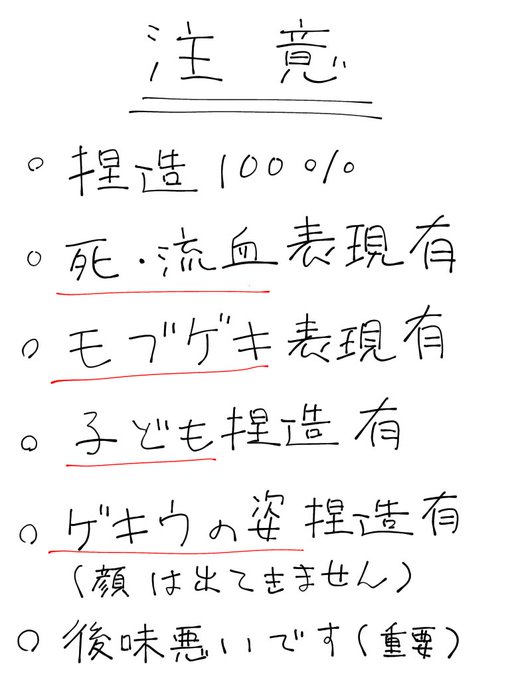 注意
○ 捏造100%
○ 死・流血表現有
○ モブゲキ表現有
○ 子ども捏造有
○ ゲキウの姿捏造有
(顔は出てきません)
○ 後味悪いです(重要)